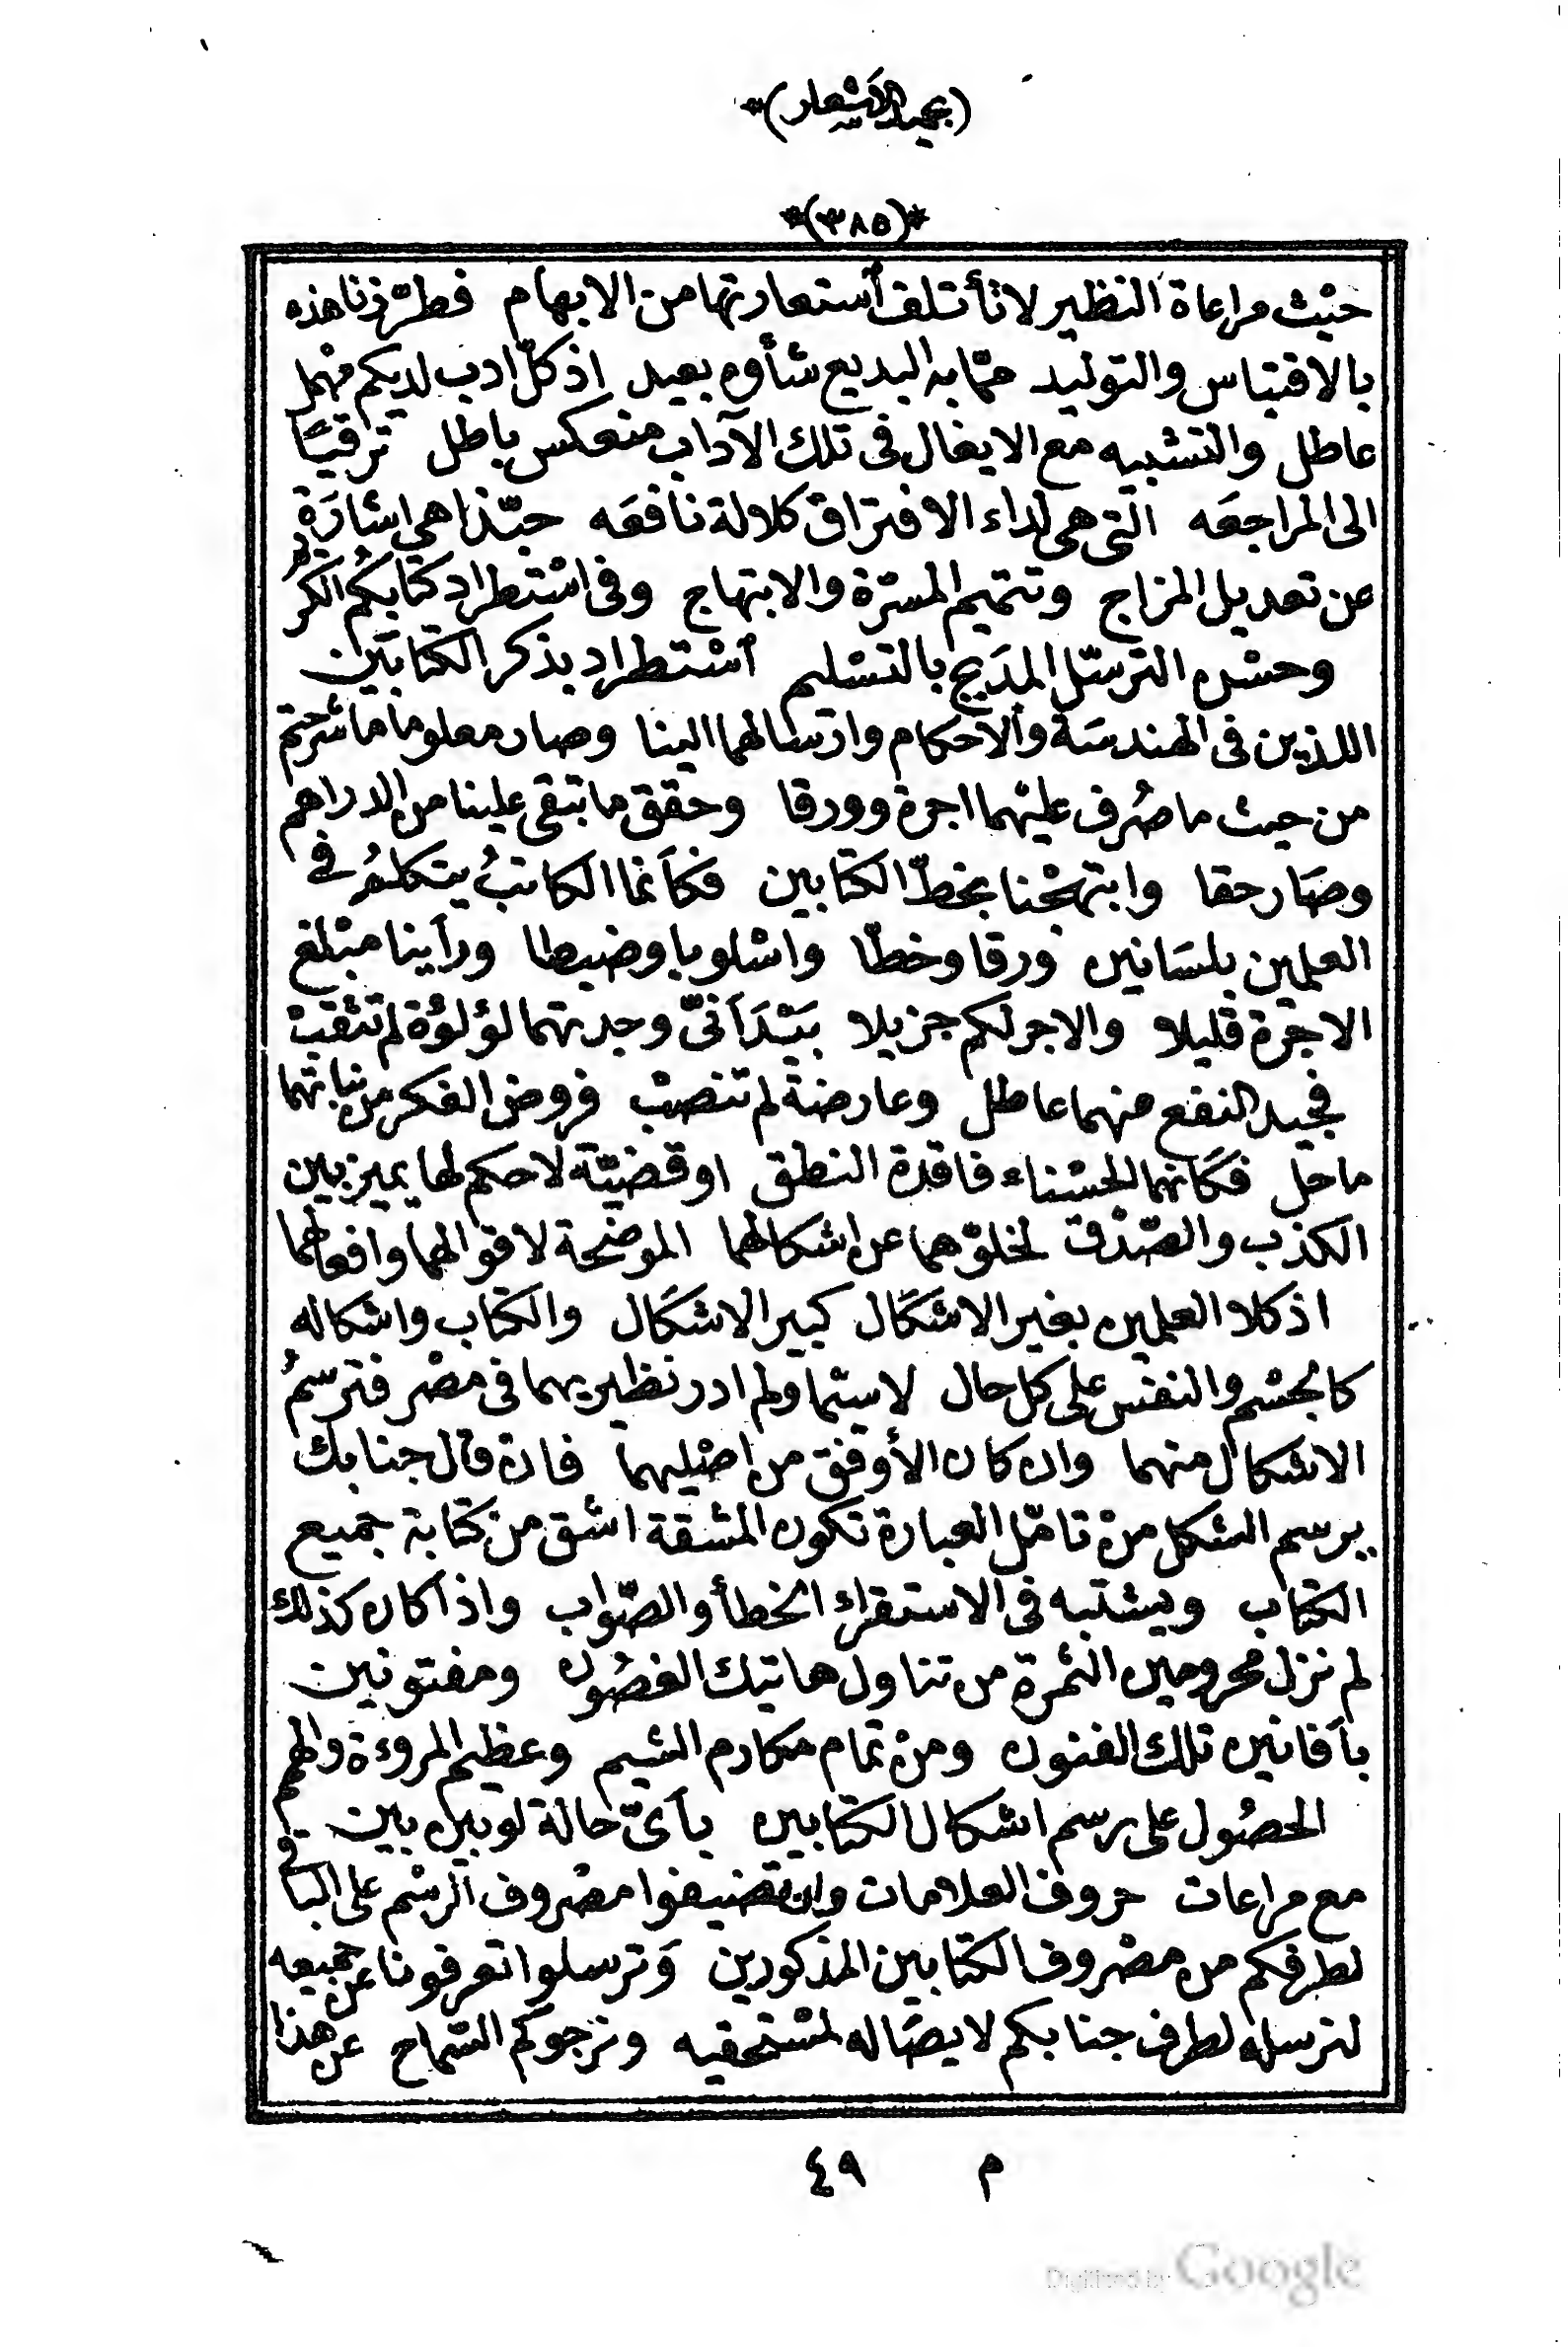 *(بحميد الأشعار)*
*(٣٨٥)*
حيْث مراعاة النظير لا تأتلف اُستعارتها من الابهام فطرّزنا هذه
بالاقتباس والتوليد ممّا به البديع شأوه بعيد اذ كلّ ادب لديكم منْهما
عاطل والتشبيه مع الايغال فى تلك الآداب منعكس باطل ترقيًا
الى المراجعَه التى هى لداء الافتراق كلالة نافعَه حبّذا هى اشارَة
عن تعديل المزاج وتتميم المسرّة والابتهاج وفى اسْتطراد كتابكُم الكريم
وحسْن الترسّل المدَبج بالتسْليم اُسْتطراد بذكر الكتابَيْن
اللذين فى الهندسَة والاحكام وارسالهما الينا وصار معلوما ما شرحتم
من حيث ما صُرف عليْهما اجرة وورقا وحقق ما تبقى علينا من الدراهم
وصَار حقا وابتهجْنا بخطّ الكتابين فكأنما الكاتبُ يتكلمُ فى
العلمين بلسَانين ورقا وخطّا واسْلوبا وضبطا ورأينا مبْلغ
الاجْرة قليلا والاجر لكم جزيلا بَيْدَ أنّى وجدتهما لؤلؤة لم تثقبْ
فجيد النفع منهما عاطل وعارضة لم تنصبْ فروض الفكر من نباتهما
ماحل فكَانهما الحسْناء فاقدة النطق او قضيّة لا حكم لها يميز بين
الكذب والصّدْق لخلوّهما عن اشكالهما الموضحة لاقوالهما وافعالهما
اذ كلا العلمين بغير الاشكَال كبير الاشكَال والكتاب واشكاله
كالجسْم والنفْس على كل حال لاسيّما ولم ادر نظيريهما فى مصْر فترسمُ
الاشكال منهما وان كان الأوفق من اصْليهما فان قال جنابك
يرسم الشكل منْ تامّل العبارة تكون المشقة اشق من كتابة جميع
الكتاب ويشتبه فى الاستقراء الخطأ والصّواب واذا كان كذلك
لم نزل محرومين الثمرة من تناول هاتيك الغصُون ومفتونين
بأفانين تلك الفنون ومنْ تمام مكارم الشيم وعظيم المروءة والهمم
الحصُول على رسم اشكال الكتابين بأىّ حالة لو بين بين
مع مراعات حروف العلامات وان تضيفوا مصْروف الرسْم على الباقى
لطرفكم من مصْروف الكتابين المذكورين وَترسلوا تعرفونا عن جميعه
لنرسله لطرف جنابكم لايصَاله لمسْتحقيه ونرجوكم السّماح عن هذا
م ٤٩
Digitized by Google